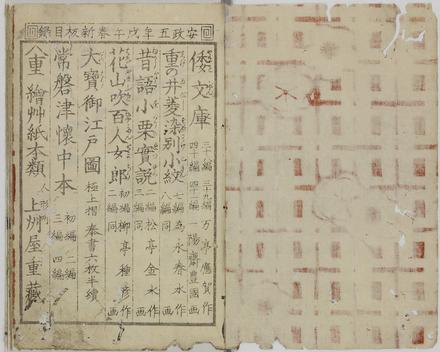 安政五年戊午春新板目録
倭文庫 三十八編 三十九編 四十編 四十一編 万亭應賀作 一陽齋豊國画
重の井菱染別小紋 七編 八編 為永春水作 同画
昔語小栗實説 二編 三編 松亭金水作 同画
花山吹百人女郎 初編 二編 柳亭種彦作 同画
大寳御江戸圖 極上摺 奉書六枚半續
常磐津懐中本 初編 二編 三編 四編
八重繪艸紙本類 人形町 上州屋重藏